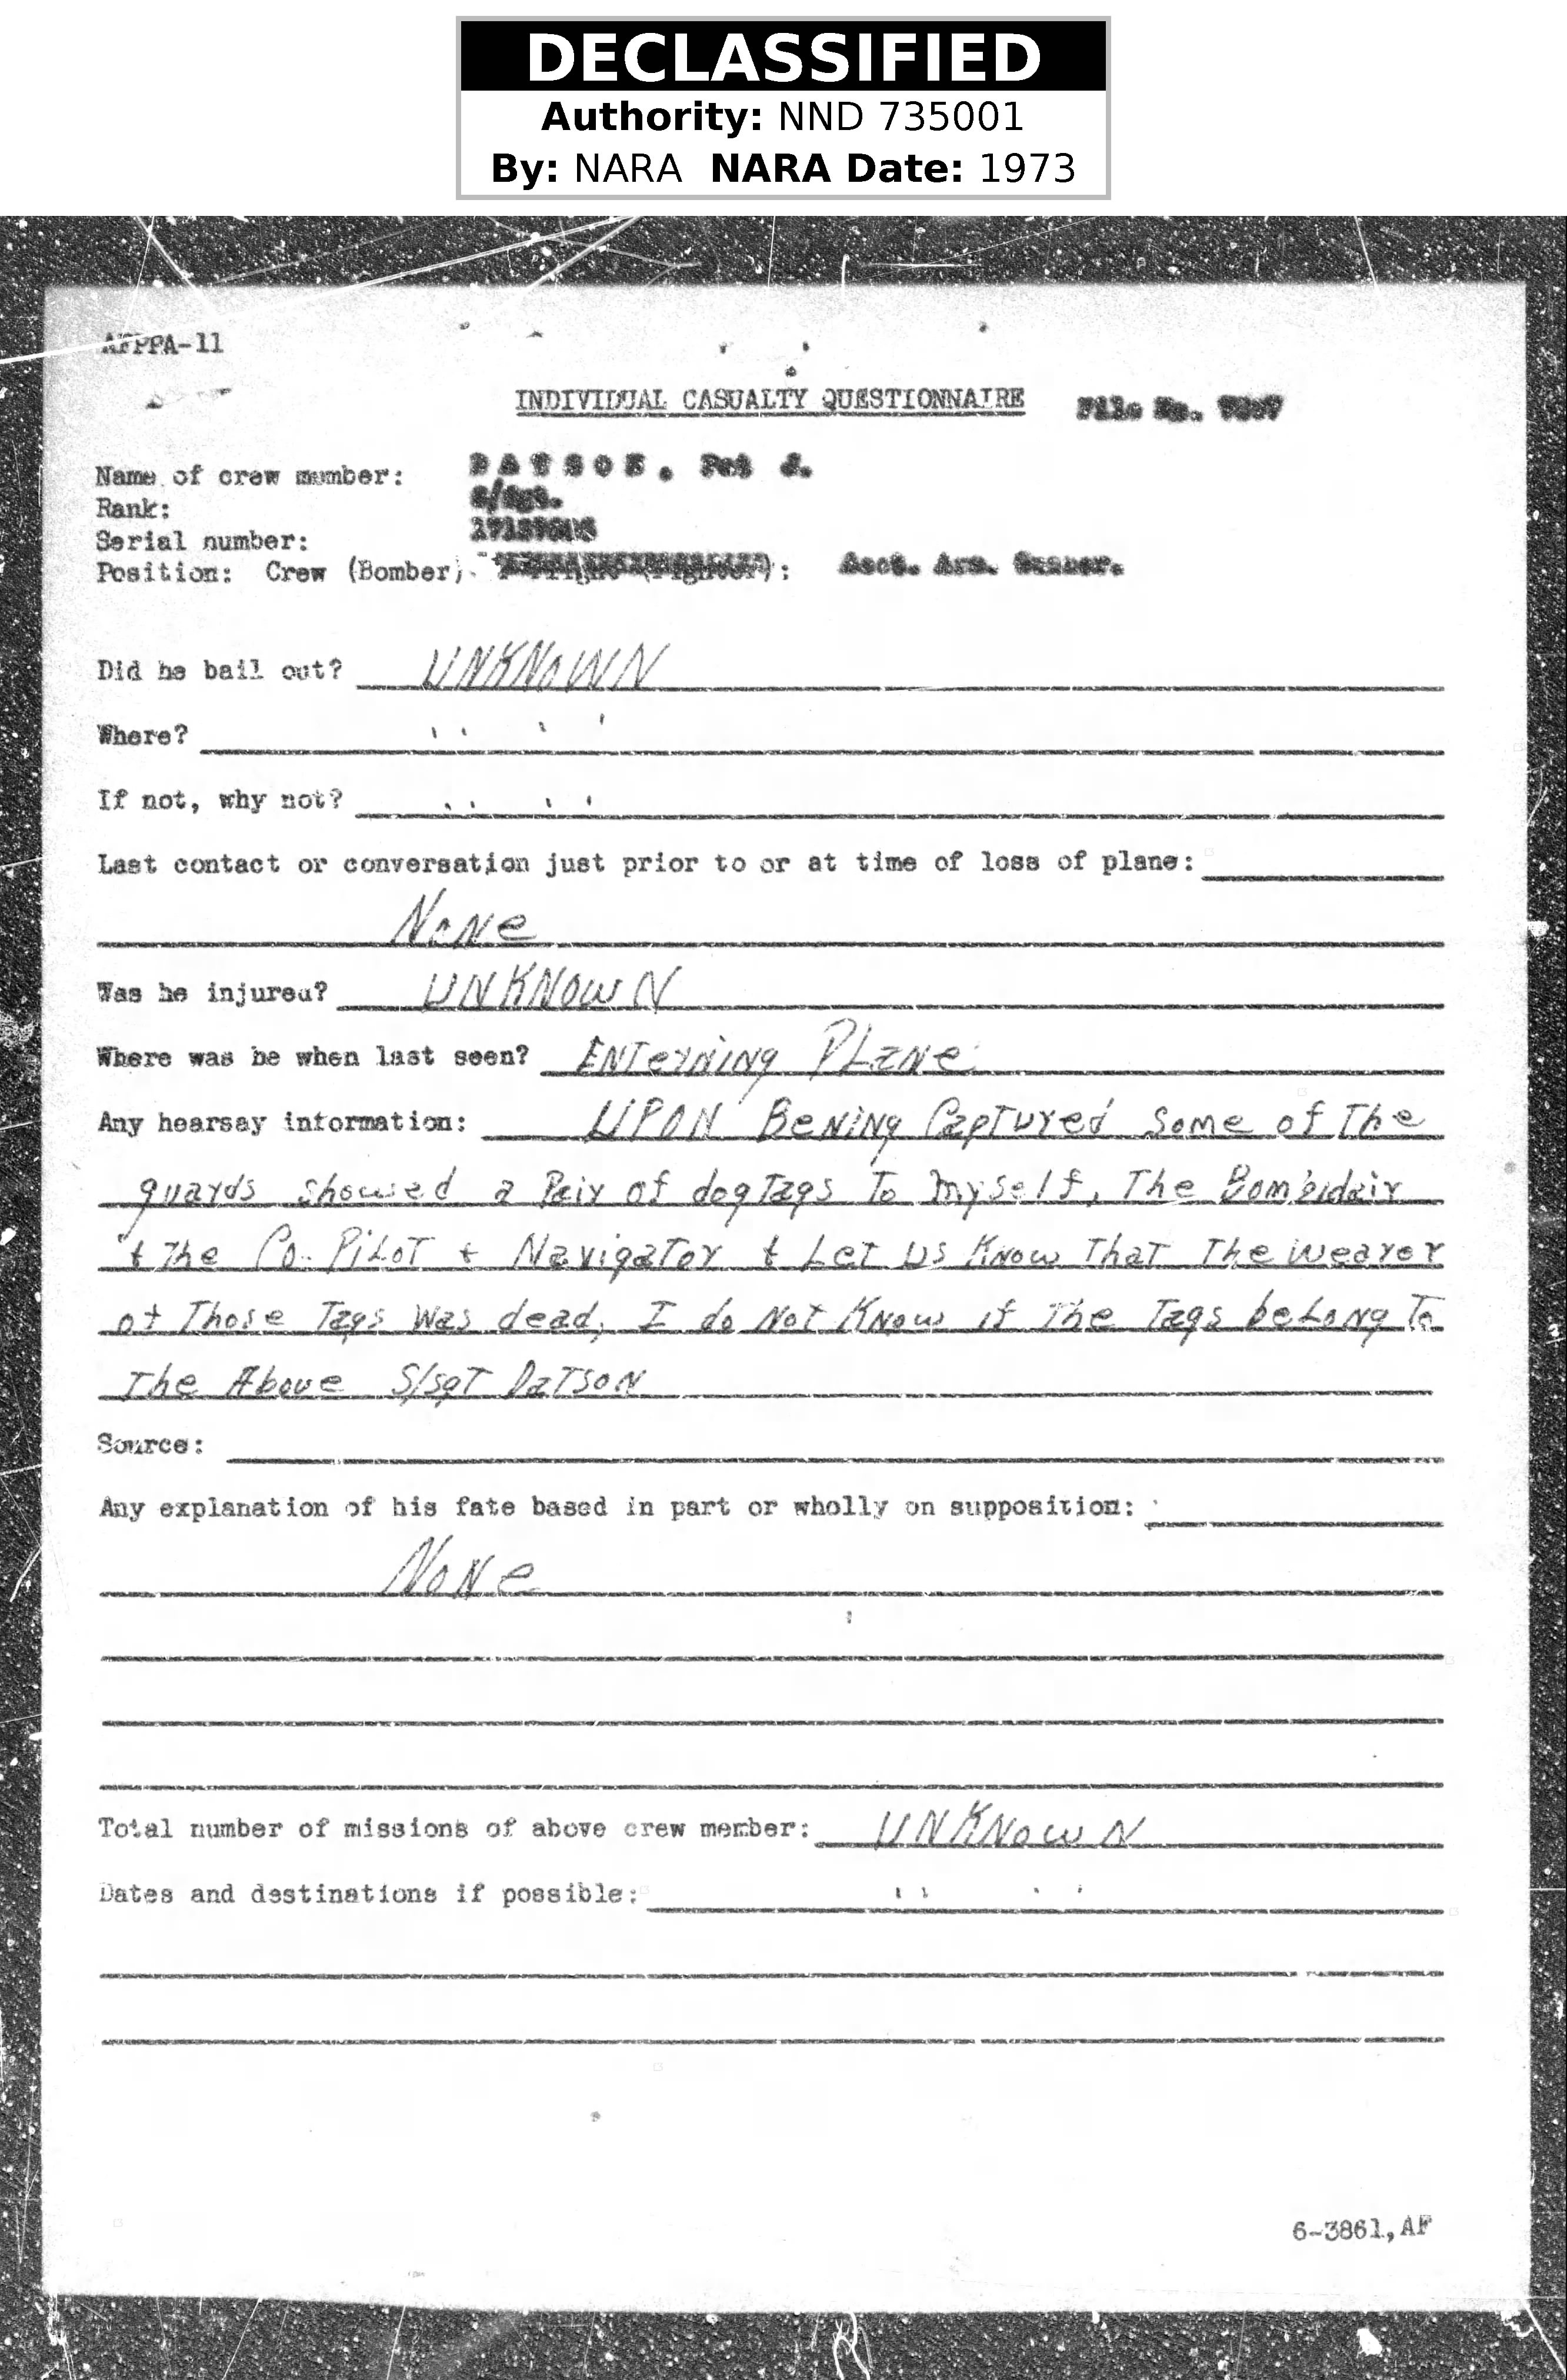 DECLASSIFIED
Authority: NND 735001
By: NARA NARA Date: 1973
AFPPA-11
INDIVIDUAL CASUALTY QUESTIONNAIRE File No.
Name of crew member: DATSON, Pat J.
Rank: S/Sgt.
Serial number:
Position: Crew (Bomber) (Fighter): Asst. Arm. Gunner.
Did he bail out? UNKNOWN
Where? '' ''
If not, why not? '' ''
Last contact or conversation just prior to or at time of loss of plane:
NoNe
Was he injured? UNKNOWN
Where was he when last seen? ENTerNiNg PLaNe
Any hearsay information: UPON BeNiNg CapTured Some of The
guards showed a Pair of dogTags To myself, The Bombidair
+ The Co. PiLoT + NavigaTor + LeT us KNow ThaT The wearer
of Those Tags was dead, I do NoT KNow if The Tags beLong To
The Above S/sgT DaTsoN
Source:
Any explanation of his fate based in part or wholly on supposition:
NoNe
Total number of missions of above crew member: UNKNowN
Dates and destinations if possible: '' ''
6-3861,AF